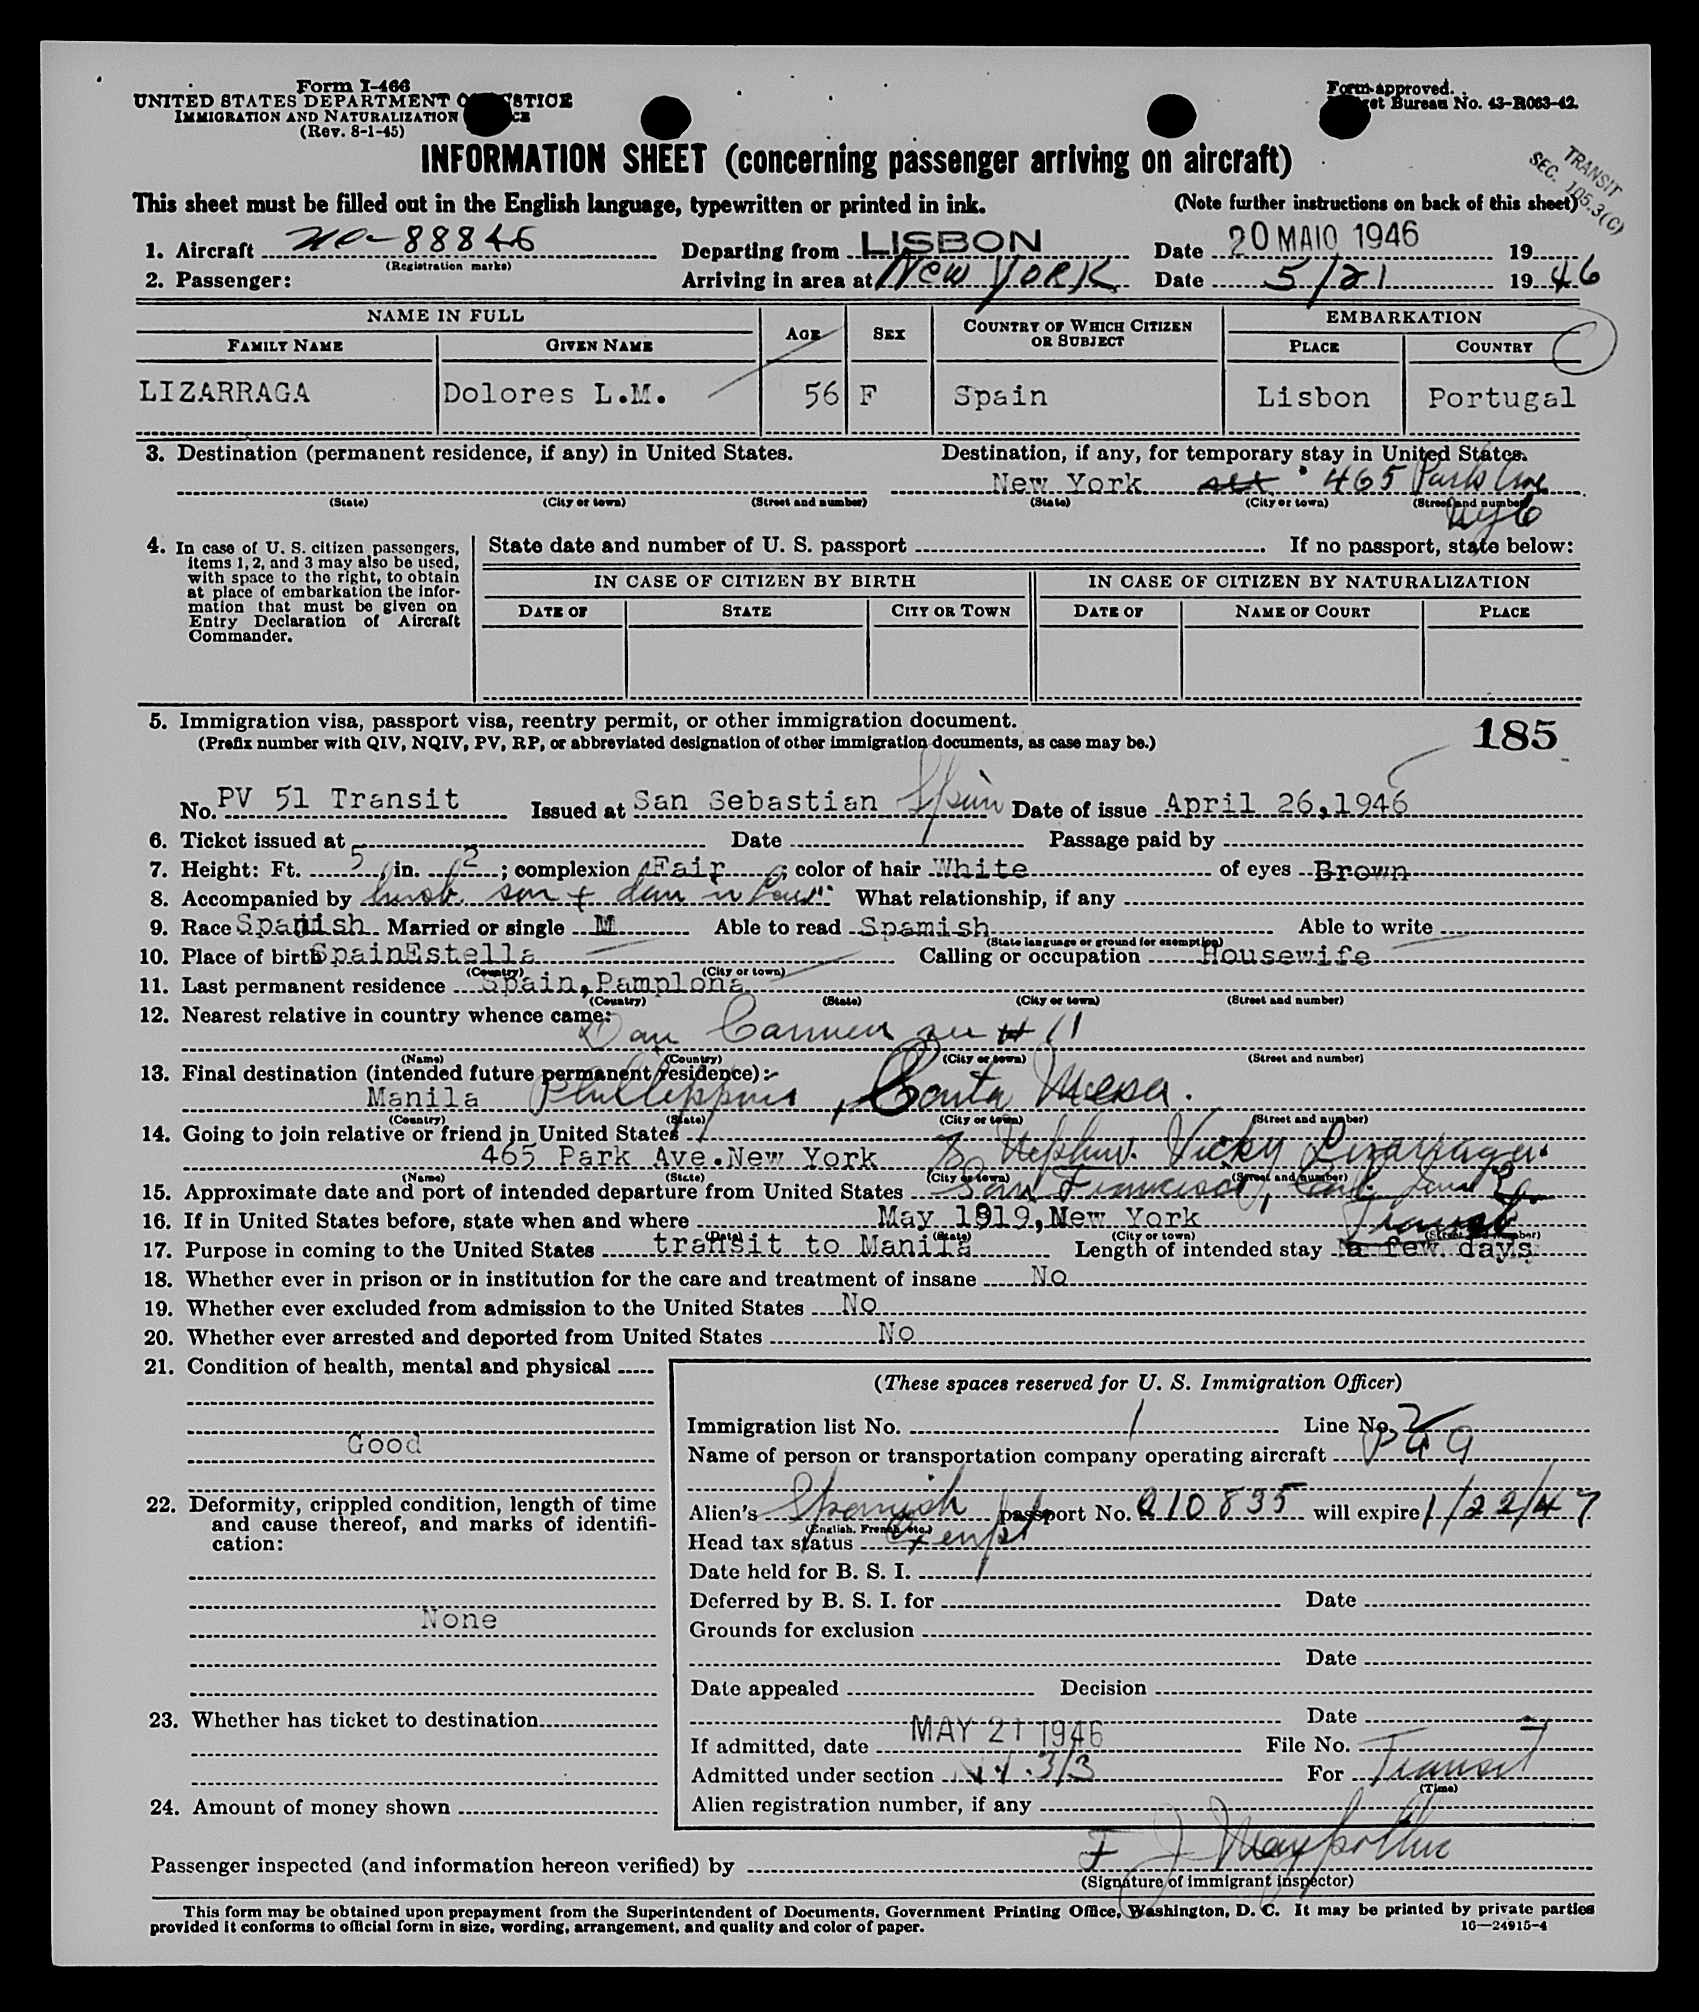 Form I-466
UNITED STATES DEPARTMENT OF JUSTICE
IMMIGRATION AND NATURALIZATION SERVICE
(Rev. 8-1-45)
Form approved.
Budget Bureau No. 43-R063-42.
TRANSIT
SEC. 105.3(C)
INFORMATION SHEET (concerning passenger arriving on aircraft)
This sheet must be filled out in the English language, typewritten or printed in ink. (Note further instructions on back of this sheet)
1. Aircraft NC-88846 Departing from LISBON Date 20 MAIO 1946 19
(Registration marks)
2. Passenger: Arriving in area at New York Date 5/21 1946
NAME IN FULL AGE SEX COUNTRY OF WHICH CITIZEN OR SUBJECT EMBARKATION
FAMILY NAME GIVEN NAME PLACE COUNTRY
LIZARRAGA Dolores L.M. 56 F Spain Lisbon Portugal
3. Destination (permanent residence, if any) in United States. Destination, if any, for temporary stay in United States.
New York 465 Park Ave
(State) (City or town) (Street and number) (State) (City or town) (Street and number)
NYC
4. In case of U. S. citizen passengers, items 1, 2, and 3 may also be used, with space to the right, to obtain at place of embarkation the information that must be given on Entry Declaration of Aircraft Commander.
State date and number of U. S. passport . If no passport, state below:
IN CASE OF CITIZEN BY BIRTH IN CASE OF CITIZEN BY NATURALIZATION
DATE OF STATE CITY OR TOWN DATE OF NAME OF COURT PLACE
5. Immigration visa, passport visa, reentry permit, or other immigration document. 185
(Prefix number with QIV, NQIV, PV, RP, or abbreviated designation of other immigration documents, as case may be.)
No. PV 51 Transit Issued at San Sebastian Spain Date of issue April 26,1946
6. Ticket issued at Date Passage paid by
7. Height: Ft. 5, in. 2; complexion Fair; color of hair White of eyes Brown
8. Accompanied by husb son + dau in law What relationship, if any
9. Race Spanish Married or single M Able to read Spamish Able to write
(State language or ground for exemption)
10. Place of birth SpainEstella Calling or occupation Housewife
(Country) (City or town)
11. Last permanent residence Spain, Pamplona
(Country) (State) (City or town) (Street and number)
12. Nearest relative in country whence came:
Dau Carmen # 11
(Name) (Country) (City or town) (Street and number)
13. Final destination (intended future permanent residence):
Manila Phillippines, Santa Mesa.
(Country) (State) (City or town) (Street and number)
14. Going to join relative or friend in United States
465 Park Ave. New York To Nephew. Vicky Lizarraga.
(Name) (State) (City or town) (Street and number)
15. Approximate date and port of intended departure from United States San Francisco, Calif.
16. If in United States before, state when and where May 1919, New York Transit
(Date) (State) (City or town) (Street and number)
17. Purpose in coming to the United States transit to Manila Length of intended stay a few days
18. Whether ever in prison or in institution for the care and treatment of insane No
19. Whether ever excluded from admission to the United States No
20. Whether ever arrested and deported from United States No
21. Condition of health, mental and physical
Good
22. Deformity, crippled condition, length of time and cause thereof, and marks of identification:
None
23. Whether has ticket to destination
24. Amount of money shown
(These spaces reserved for U. S. Immigration Officer)
Immigration list No. 1 Line No. 2
Name of person or transportation company operating aircraft PAA
Alien's Spanish passport No. 210835 will expire 1/22/47
(English, French, etc.)
Head tax status Exempt
Date held for B. S. I.
Deferred by B. S. I. for Date
Grounds for exclusion
Date
Date appealed Decision
Date
If admitted, date MAY 21 1946 File No.
Admitted under section 3/3 For Transit
(Time)
Alien registration number, if any
Passenger inspected (and information hereon verified) by F J
(Signature of immigrant inspector)
This form may be obtained upon prepayment from the Superintendent of Documents, Government Printing Office, Washington, D. C. It may be printed by private parties
provided it conforms to official form in size, wording, arrangement, and quality and color of paper. 16—24915-4